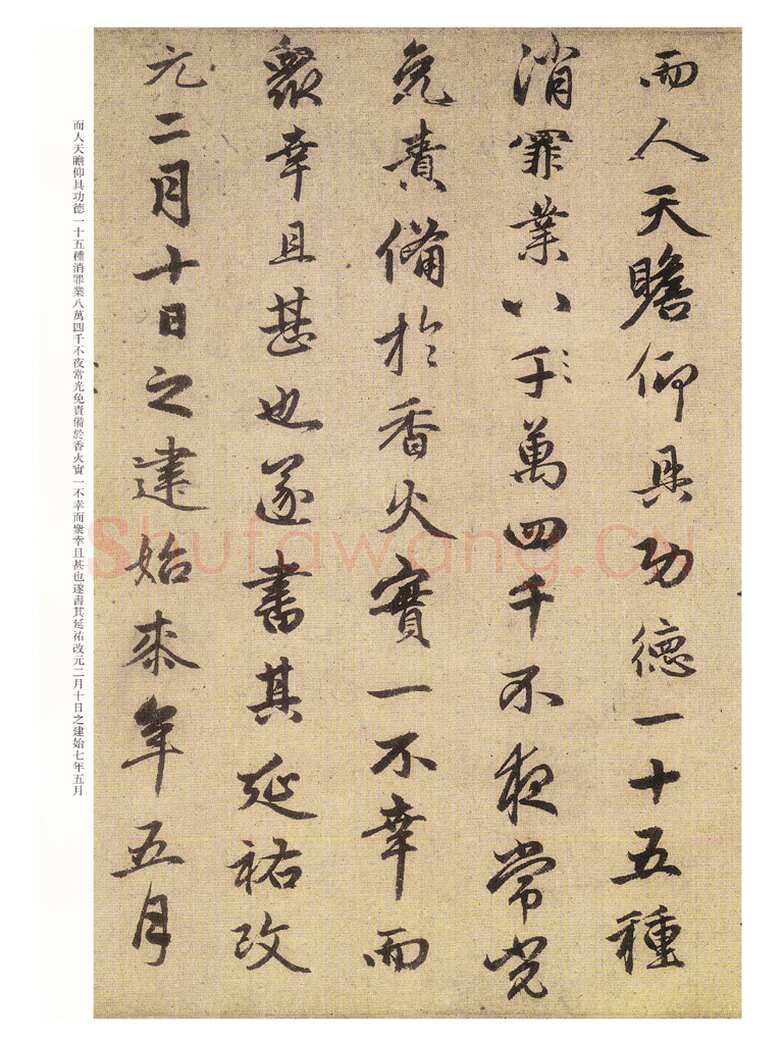 而人天瞻仰具功德一十五種
消罪業八千萬四千不夜常光
免責備於香火實一不幸而
眾幸且甚也遂書其延祐改
元二月十日之建始柒年五月
而人天瞻仰具功德一十五種消罪業八萬四千不夜常光免責備於香火實一不幸而衆幸且甚也遂書其延祐改元二月十日之建始七年五月
Shufawang.CN